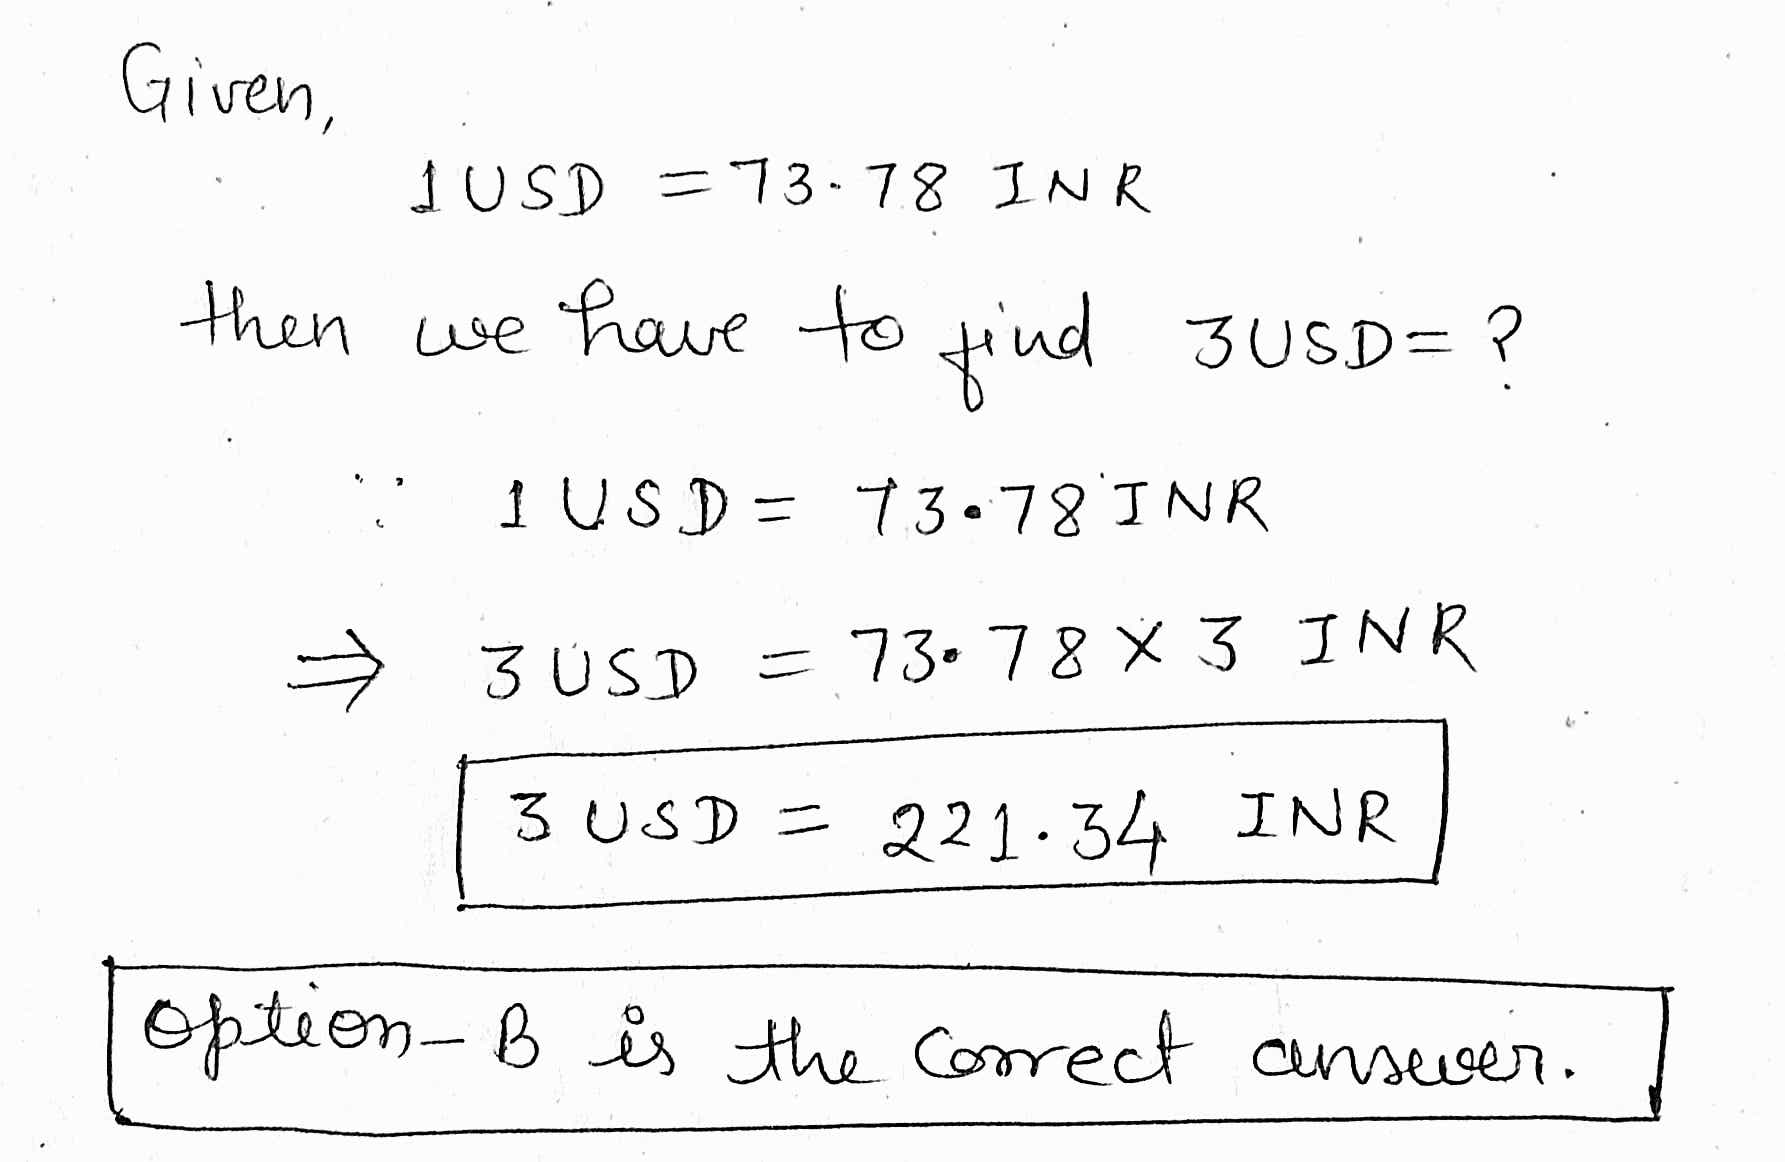 Given,
1 USD = 73.78 INR
then we have to find 3 USD = ?
∵ 1 USD = 73.78 INR
⇒ 3 USD = 73.78 × 3 INR
3 USD = 221.34 INR
Option-B is the correct answer.